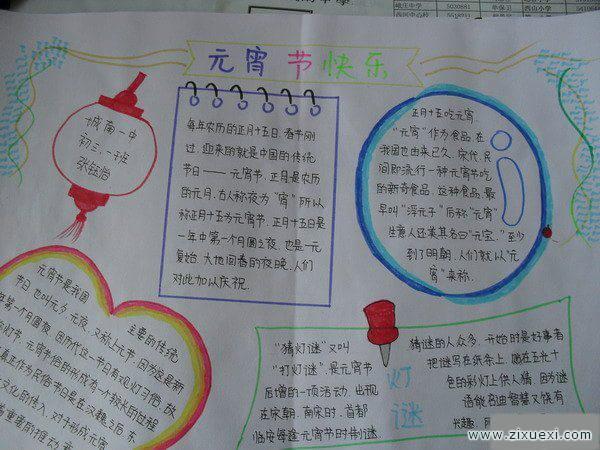 元宵节快乐
城南一中
初三、一班
每年农历的正月十五日.春节刚
过.迎来的就是中国的传统
节日——元宵节.正月是农历
的元月.古人称夜为“宵”所以
称正月十五为元宵节.正月十五日是
一年中第一个月圆之夜.也是一元
复始.大地回春的夜晚.人们
对此加以庆祝.
正月十五吃元宵.
“元宵”作为食品.在
我国也由来已久.宋代.民
间即流行一种元宵节吃
的新奇食品.这种食品.最
早叫“浮元子”后称“元宵”
生意人还美其名曰“元宝.”至少
到了明朝.人们就以“元
宵”来称.
元宵节是我国
主要的传统
节日.也叫元夕.元夜.又称上元节.因为这是新
年第一个月圆夜.因历代这一节日有观灯习俗.故
灯节.元宵节俗的形成有一个较长的过程
真正作为民俗节日是在汉魏之后.东
文化的传入.对于形成元宵
重要的推动
“猜灯谜”又叫
“打灯谜”.是元宵节
后增的一项活动.出现
在宋朝.南宋时.首都
临安每逢元宵节时制谜.
灯
谜
猜谜的人众多.开始时是好事者
把谜写在纸条上.贴在五光十
色的彩灯上供人猜.因为谜
语能启迪智慧又饶有
兴趣.
www.zixuexi.com